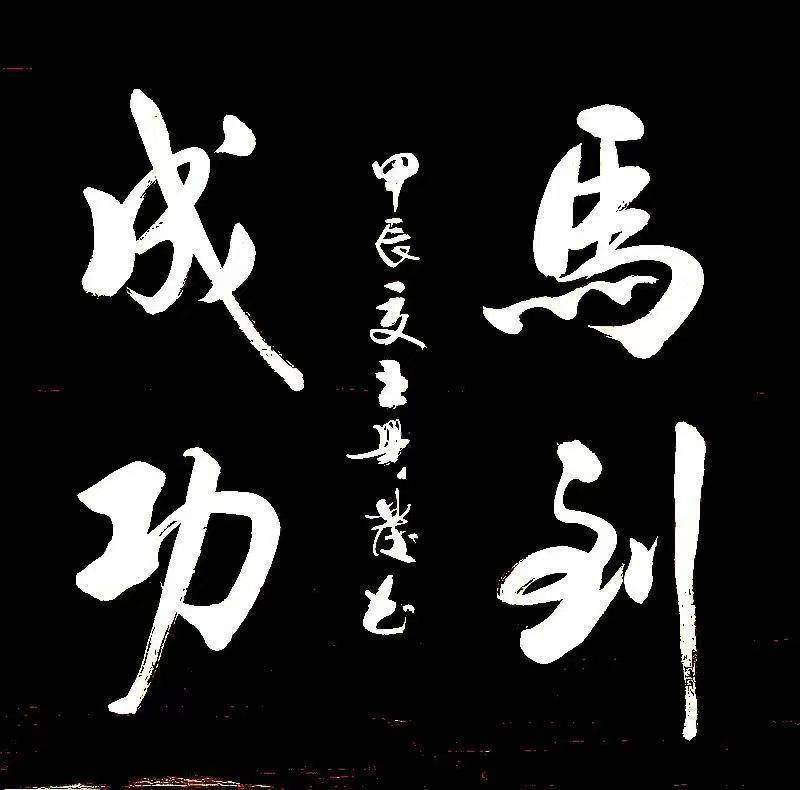 馬到
成功
甲辰夏王興书